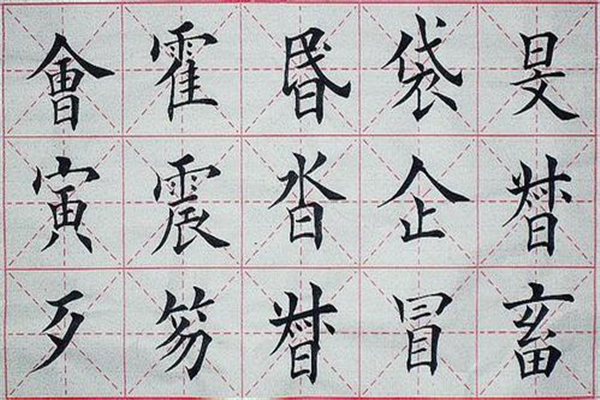 會霍昬袋旻
寅震沓企
歹笏冒畜